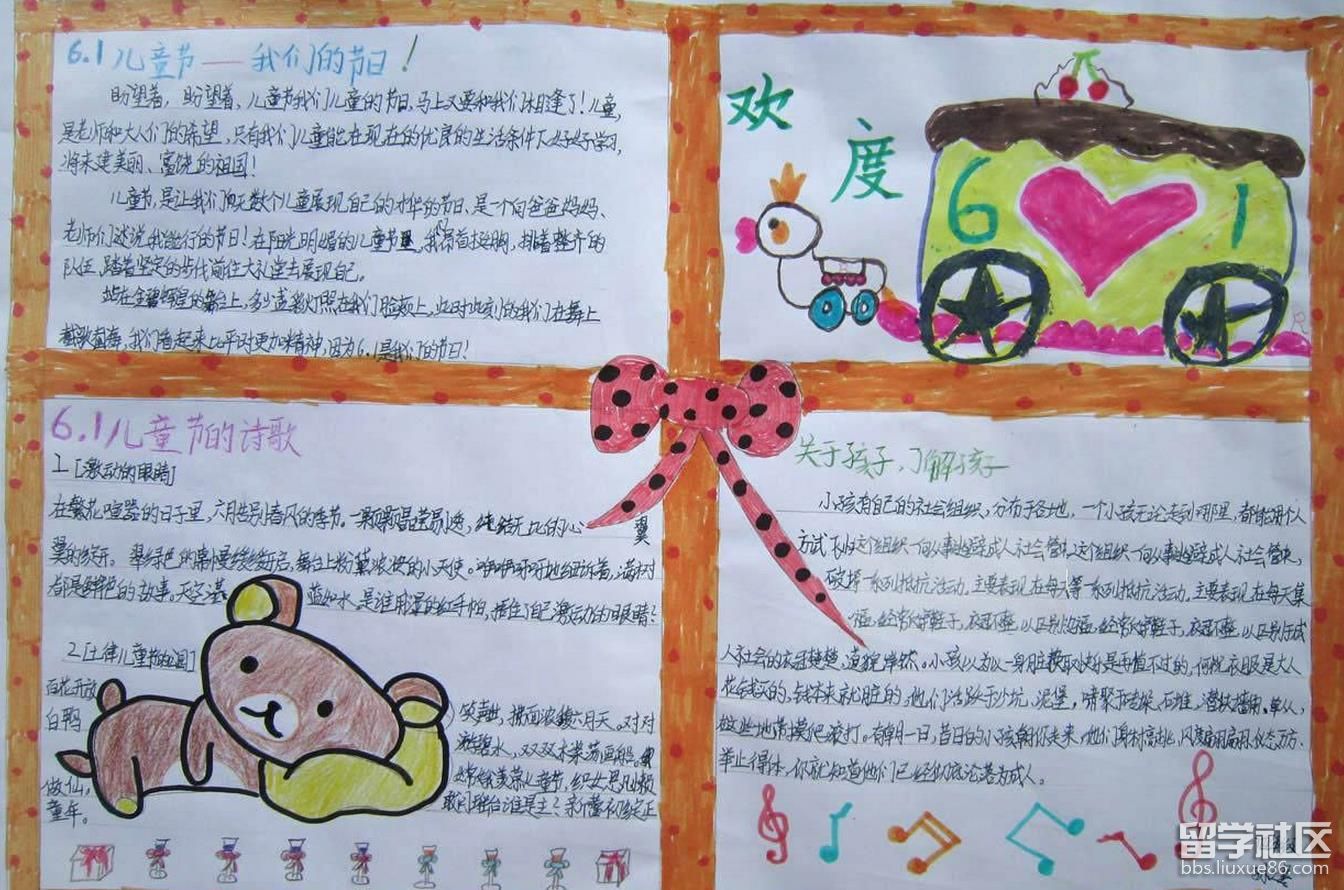 6.1儿童节——我们的节日!
盼望着,盼望着、儿童节我们儿童的节日,马上又要和我们相逢了!儿童,
是老师和大人们的希望,只有我们儿童能在现在的优良的生活条件下好好学习,
将来建美丽、富饶的祖国!
儿童节,是让我们无数个儿童展现自己的才华的节日、是一个向爸爸妈妈、
老师们述说我能行的节日!在阳光明媚的儿童节里,我昂首挺胸,排着整齐的
队伍,踏着坚定的步伐前往大礼堂去展现自己。
站在金碧辉煌的舞台上,多少盏彩灯照在我们脸颊上,此时此刻的我们在舞上
我们看起来比平时更加精神,因为6.1是我们的节日!
欢度
6 1
6.1儿童节的诗歌
1[激动的眼睛]
在繁花喧嚣的日子里,六月告别春风的季节。一颗颗晶莹剔透,纯鲩无比的心
翼
翼的绽开。翠绿色的帘幔缓缓开启,舞台上粉黛浓浓的小天使。咿咿呀呀地细诉着,满树
都是鲜艳的故事。天空湛蓝如水,是谁用星的红手帕,捂住了自己激动的眼睛?
2[七律儿童节的公园]
百花开放 笑声甜,拂面浓馥六月天。对对
白鸭 碧水,双双木桨荡画船。
做仙。 儿童节,织女思凡懒
童年。 歌 擂台谁是主?新蕾初绽正
关于孩子,了解孩子
小孩有自己的社会组织,分布于各地,一个小孩无论走到哪里,都能用个人
方式 这个组织一向从事逃避成人社会管束,这个组织一向从事逃避成人社会管束,
破坏一系列抵抗活动,主要表现在每天等一系列抵抗活动,主要表现在每天集
福,经常穿鞋子,衣冠不整,以区别 福,经常 鞋子,衣冠不整,以区别于成
人社会的衣冠楚楚、道貌岸然。小孩以为以一身脏换取快乐是再值不过的,何况衣服是大人
花钱买的,钱本来就是脏的,他们活跃于沙坑,泥堡,啸聚于 ,石堆,潜伏墙角、草丛,
这些地 摸爬滚打。有朝一日,昔日的小孩朝你走来,他们身材高挑,风度翩翩,仪态万方、
举止得体,你就知道他们已经彻底沦落为成人。
留学社区
bbs.liuxue86.com